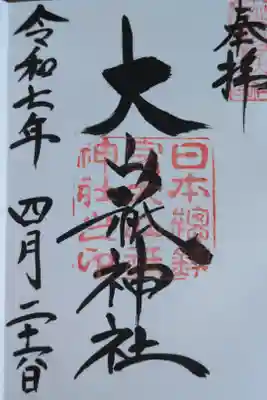 奉拝
大山祇神社
日本總鎮
神社之印
令和七年 四月二十六日